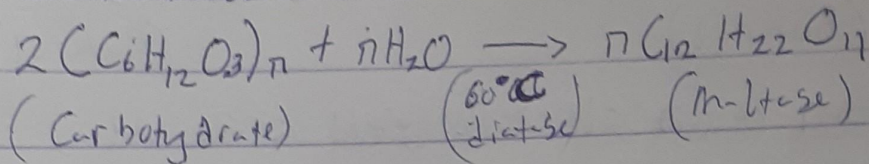 2(C6H12O3)n + nH2O → nC12H22O11
(Carbohydrate) (60°C diatase) (maltase)